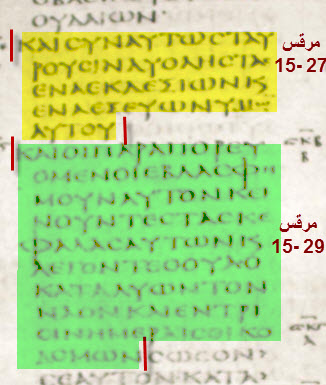 ΟΥΔΑΙΩΝ·
ΚΑΙϹΥΝΑΥΤΩϹΤΑΥ
ΡΟΥϹΙΝΔΥΟΛΗϹΤΑ
ΕΝΑΕΚΔΕΞΙΩΝΚ
ΕΝΑΕΞΕΥΩΝΥΜ
ΑΥΤΟΥ
مرقس
15-27
ΚΑΙΟΙΠΑΡΑΠΟΡΕΥ
ΟΜΕΝΟΙΕΒΛΑϹΦΗ
ΜΟΥΝΑΥΤΟΝΚΕΙ
ΝΟΥΝΤΕϹΤΑϹΚΕ
ΦΑΛΑϹΑΥΤΩΝΚ
ΛΕΓΟΝΤΕϹΟΥΑΟ
ΚΑΤΑΛΥΩΝΤΟΝ
ΝΑΟΝΚΑΙΕΝΤΡΙ
ϹΙΝΗΜΕΡΑΙϹΟΙΚΟ
ΔΟΜΩΝϹΩϹΟΝ
ϹΕΑΥΤΟΝΚΑΤΑ
مرقس
15-29